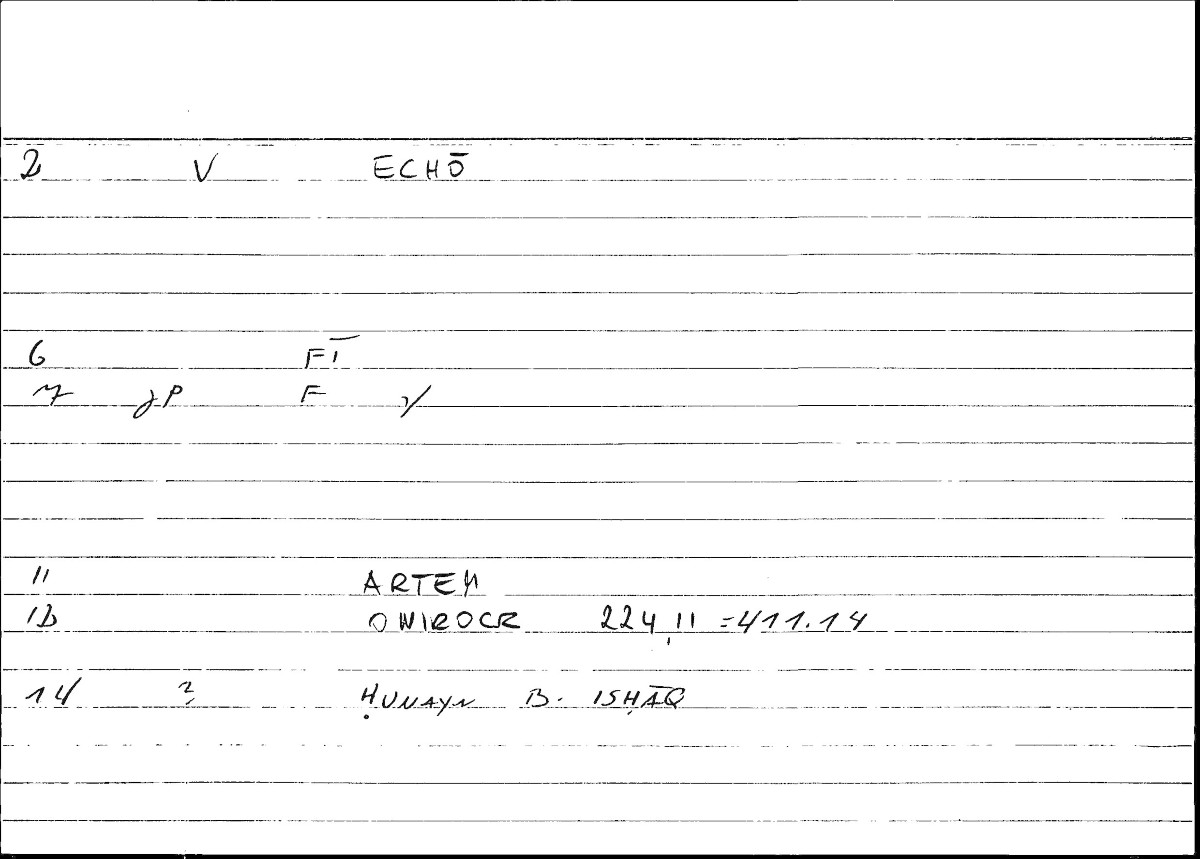 2 V ECHŌ
6 FĪ
7 JP F
11 ARTEM
12 ONIROCR 224,11 = 411.14
14 ? ḤUNAYN B. ISḤĀQ